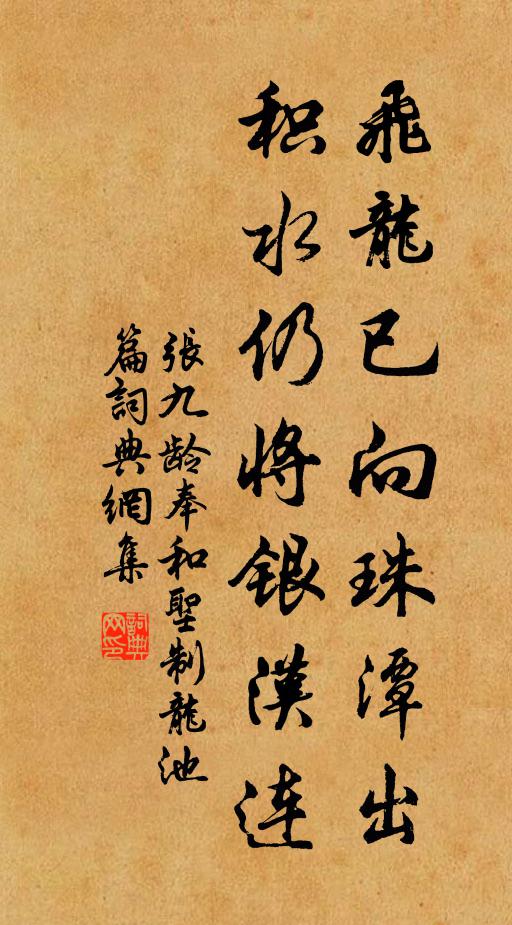 飛龍已向珠潭出
积水仍将銀漢连
張九龄奉和聖制龍池
篇詞典網集
詞典
网印